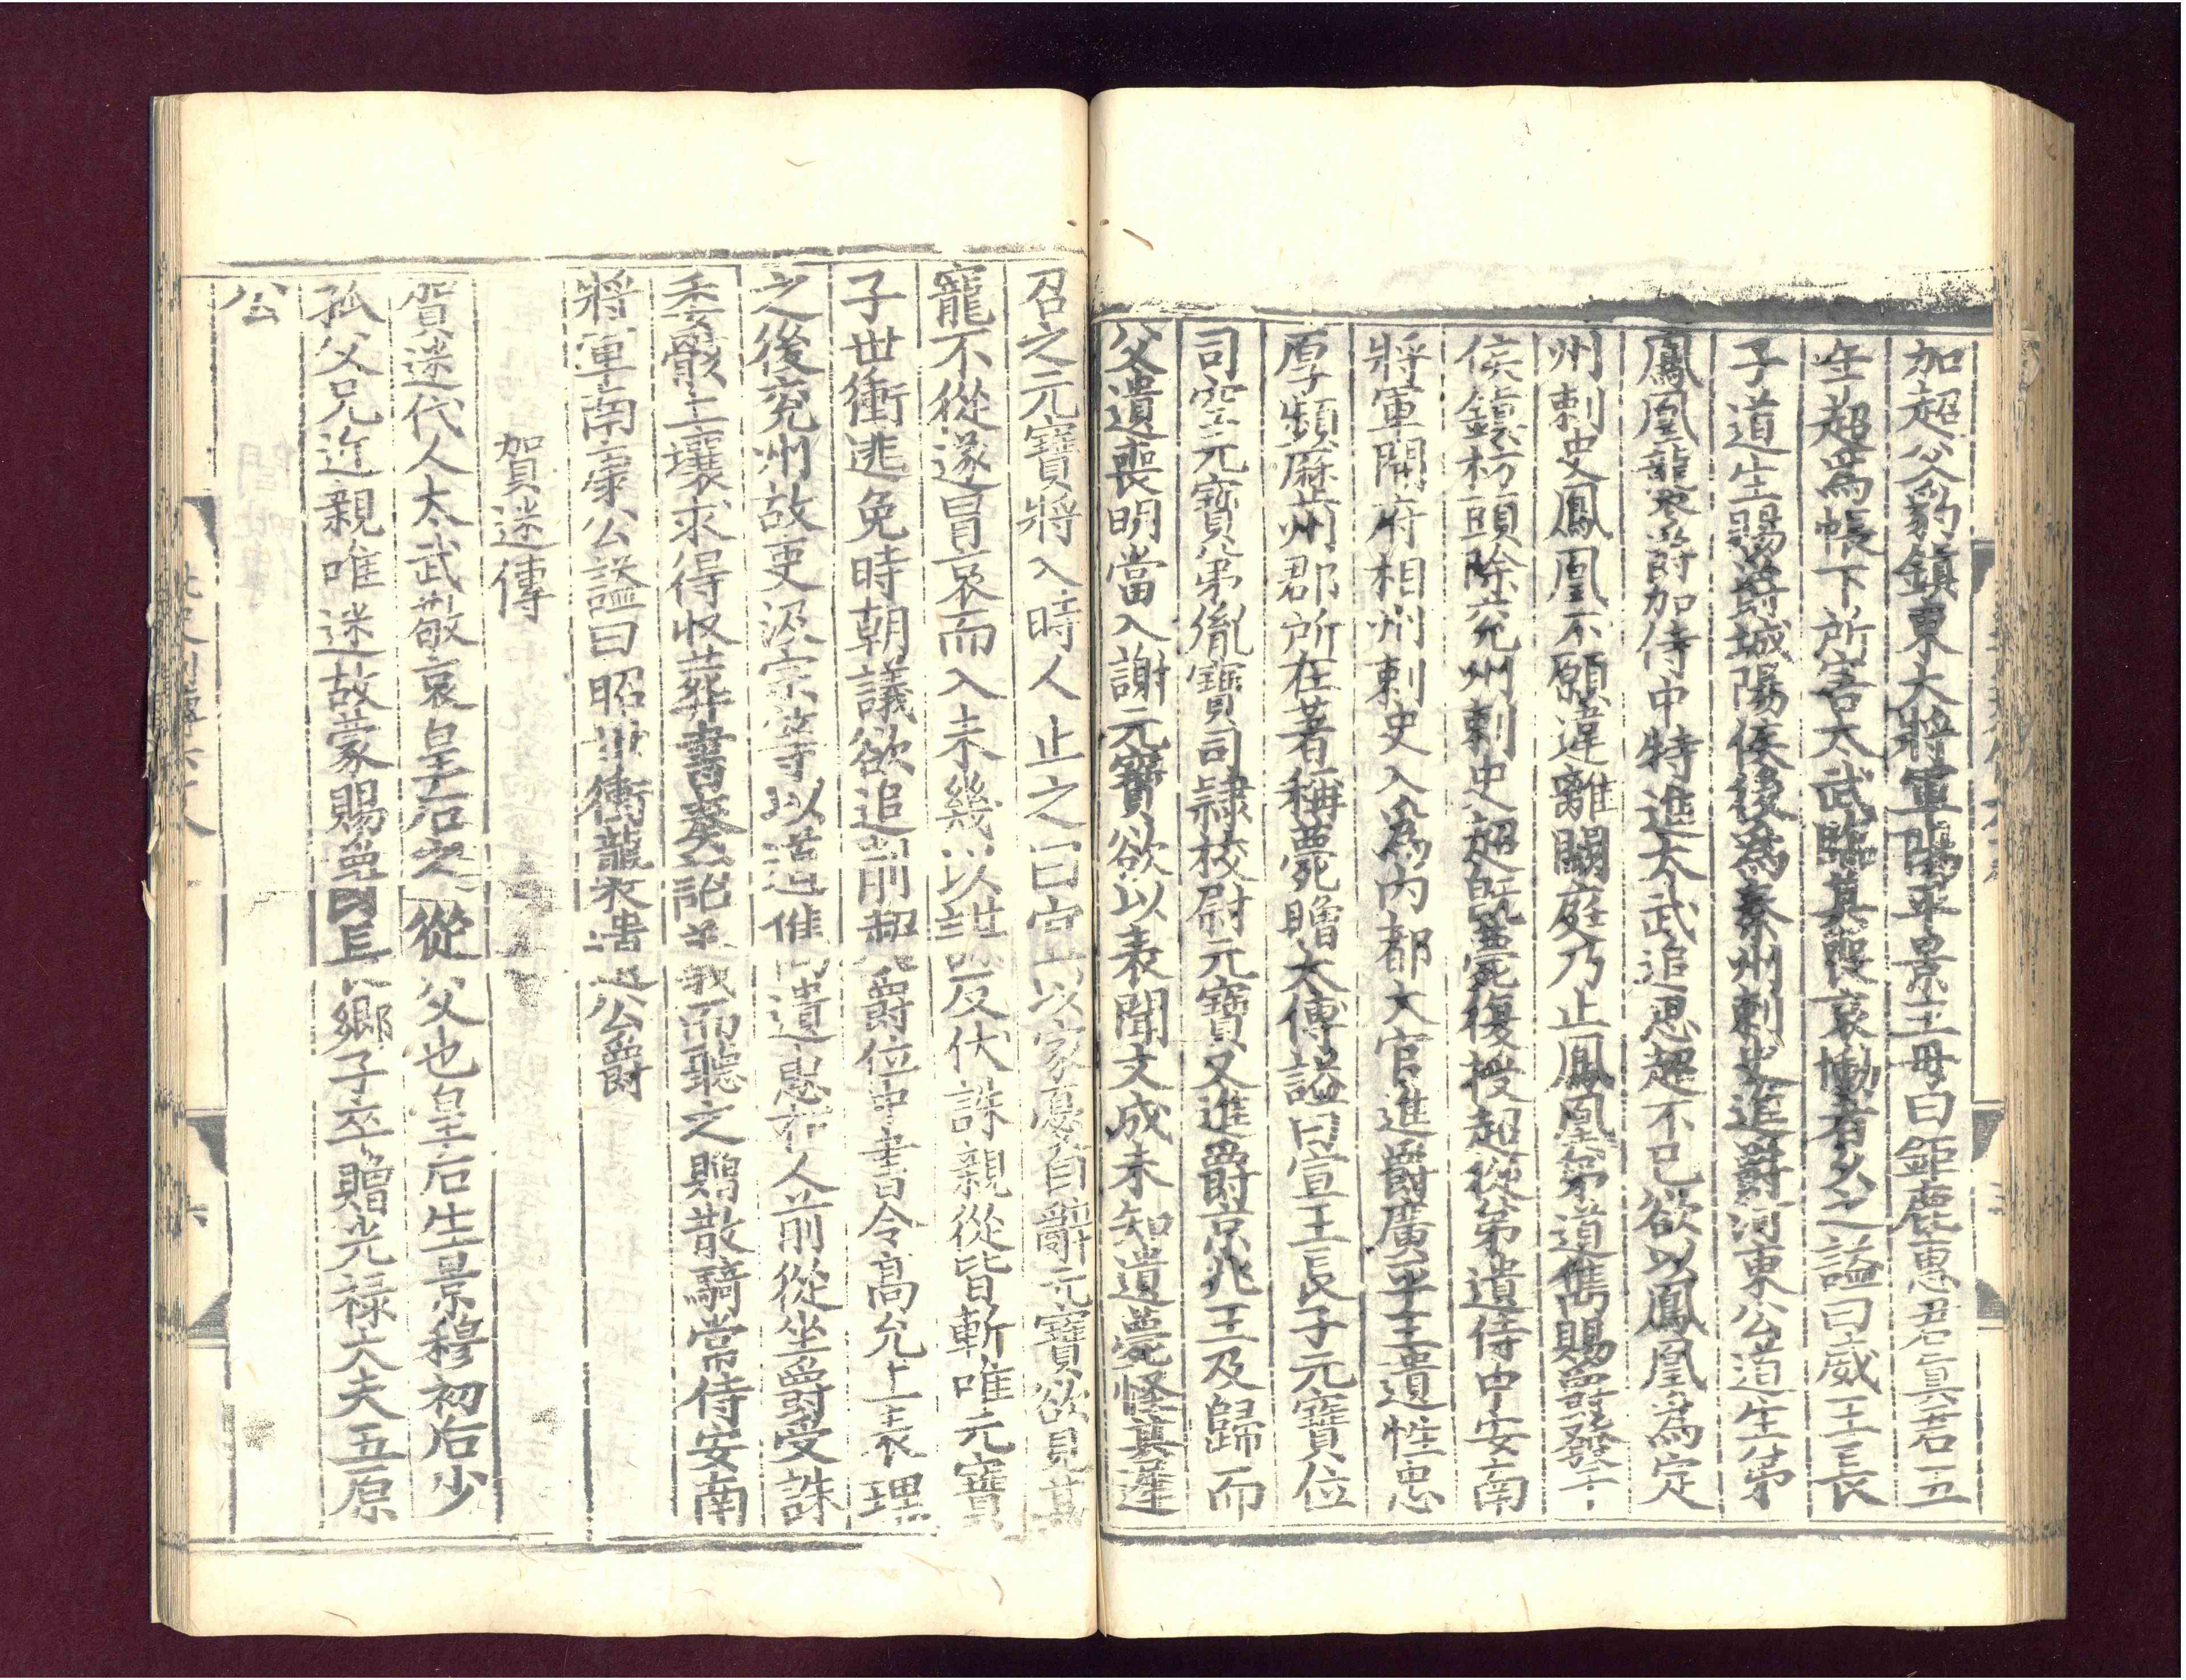 加超父豹鎮東大將軍陽平景王母曰鉅鹿惠君眞君五
年超爲帳下所害太武臨其喪哀慟者久之諡曰威王長
子道生賜爵城陽侯後爲秦州刺史進爵河東公道生弟
鳳凰襲爵加侍中特進太武追思超不已欲以鳳凰爲定
州刺史鳳凰不願違離闕庭乃止鳳凰弟道雋賜爵發干
侯鎮枋頭除兗州刺史超旣薨復授超從弟遺侍中安南
將軍開府相州刺史入爲内都大官進爵廣平王遺性忠
厚頻歷州郡所在著稱薨贈太傅諡曰宣王長子元寶位
司空元寶弟胤寶司隸校尉元寶又進爵京兆王及歸而
父遺喪明當入謝元寶欲以表聞文成未知遺薨怪其遲
召之元寶將入時人止之曰宜以家憂自辭元寶欲見其
寵不從遂冒哀而入未幾以謀反伏誅親從皆斬唯元寶
子世衝逃免時朝議欲追削超爵位中書令高允上表理
之後兗州故吏汲宗等以道遺愛在人前從坐爵受誅
委骸土壤求得收葬書奏詔義而聽之贈散騎常侍安南
將軍南康公諡曰昭世衝襲公爵
賀迷傳
賀迷代人太武敬哀皇后之從父也皇后生景穆初后少
孤父兄近親唯迷故蒙賜爵長鄉子卒贈光祿大夫五原
公